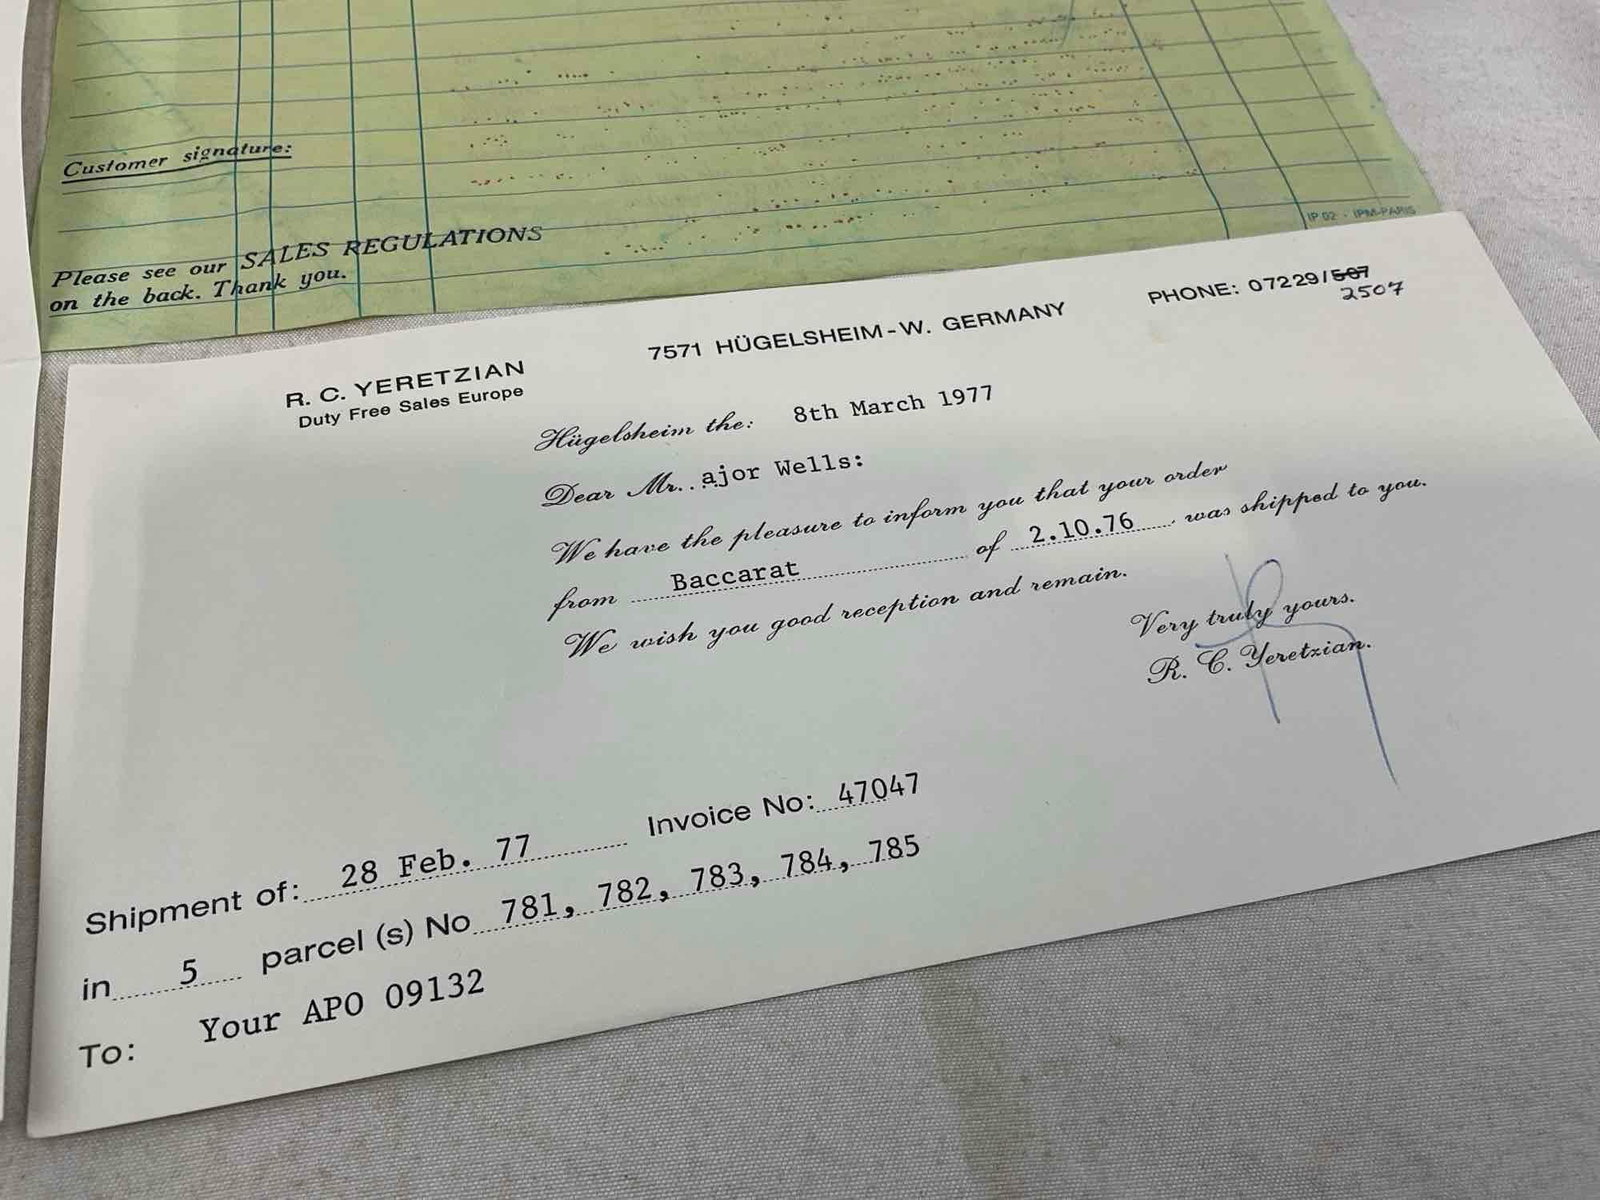 Customer signature:
Please see our SALES REGULATIONS
on the back. Thank you.
IP 02 - IPM-PARIS
R. C. YERETZIAN
Duty Free Sales Europe
7571 HÜGELSHEIM-W. GERMANY
PHONE: 07229/507
2507
Hügelsheim the: 8th March 1977
Dear Mr...ajor Wells:
We have the pleasure to inform you that your order
from Baccarat of 2.10.76 was shipped to you.
We wish you good reception and remain.
Very truly yours.
R. C. Yeretzian.
Shipment of: 28 Feb. 77 Invoice No: 47047
in 5 parcel (s) No 781, 782, 783, 784, 785
To: Your APO 09132